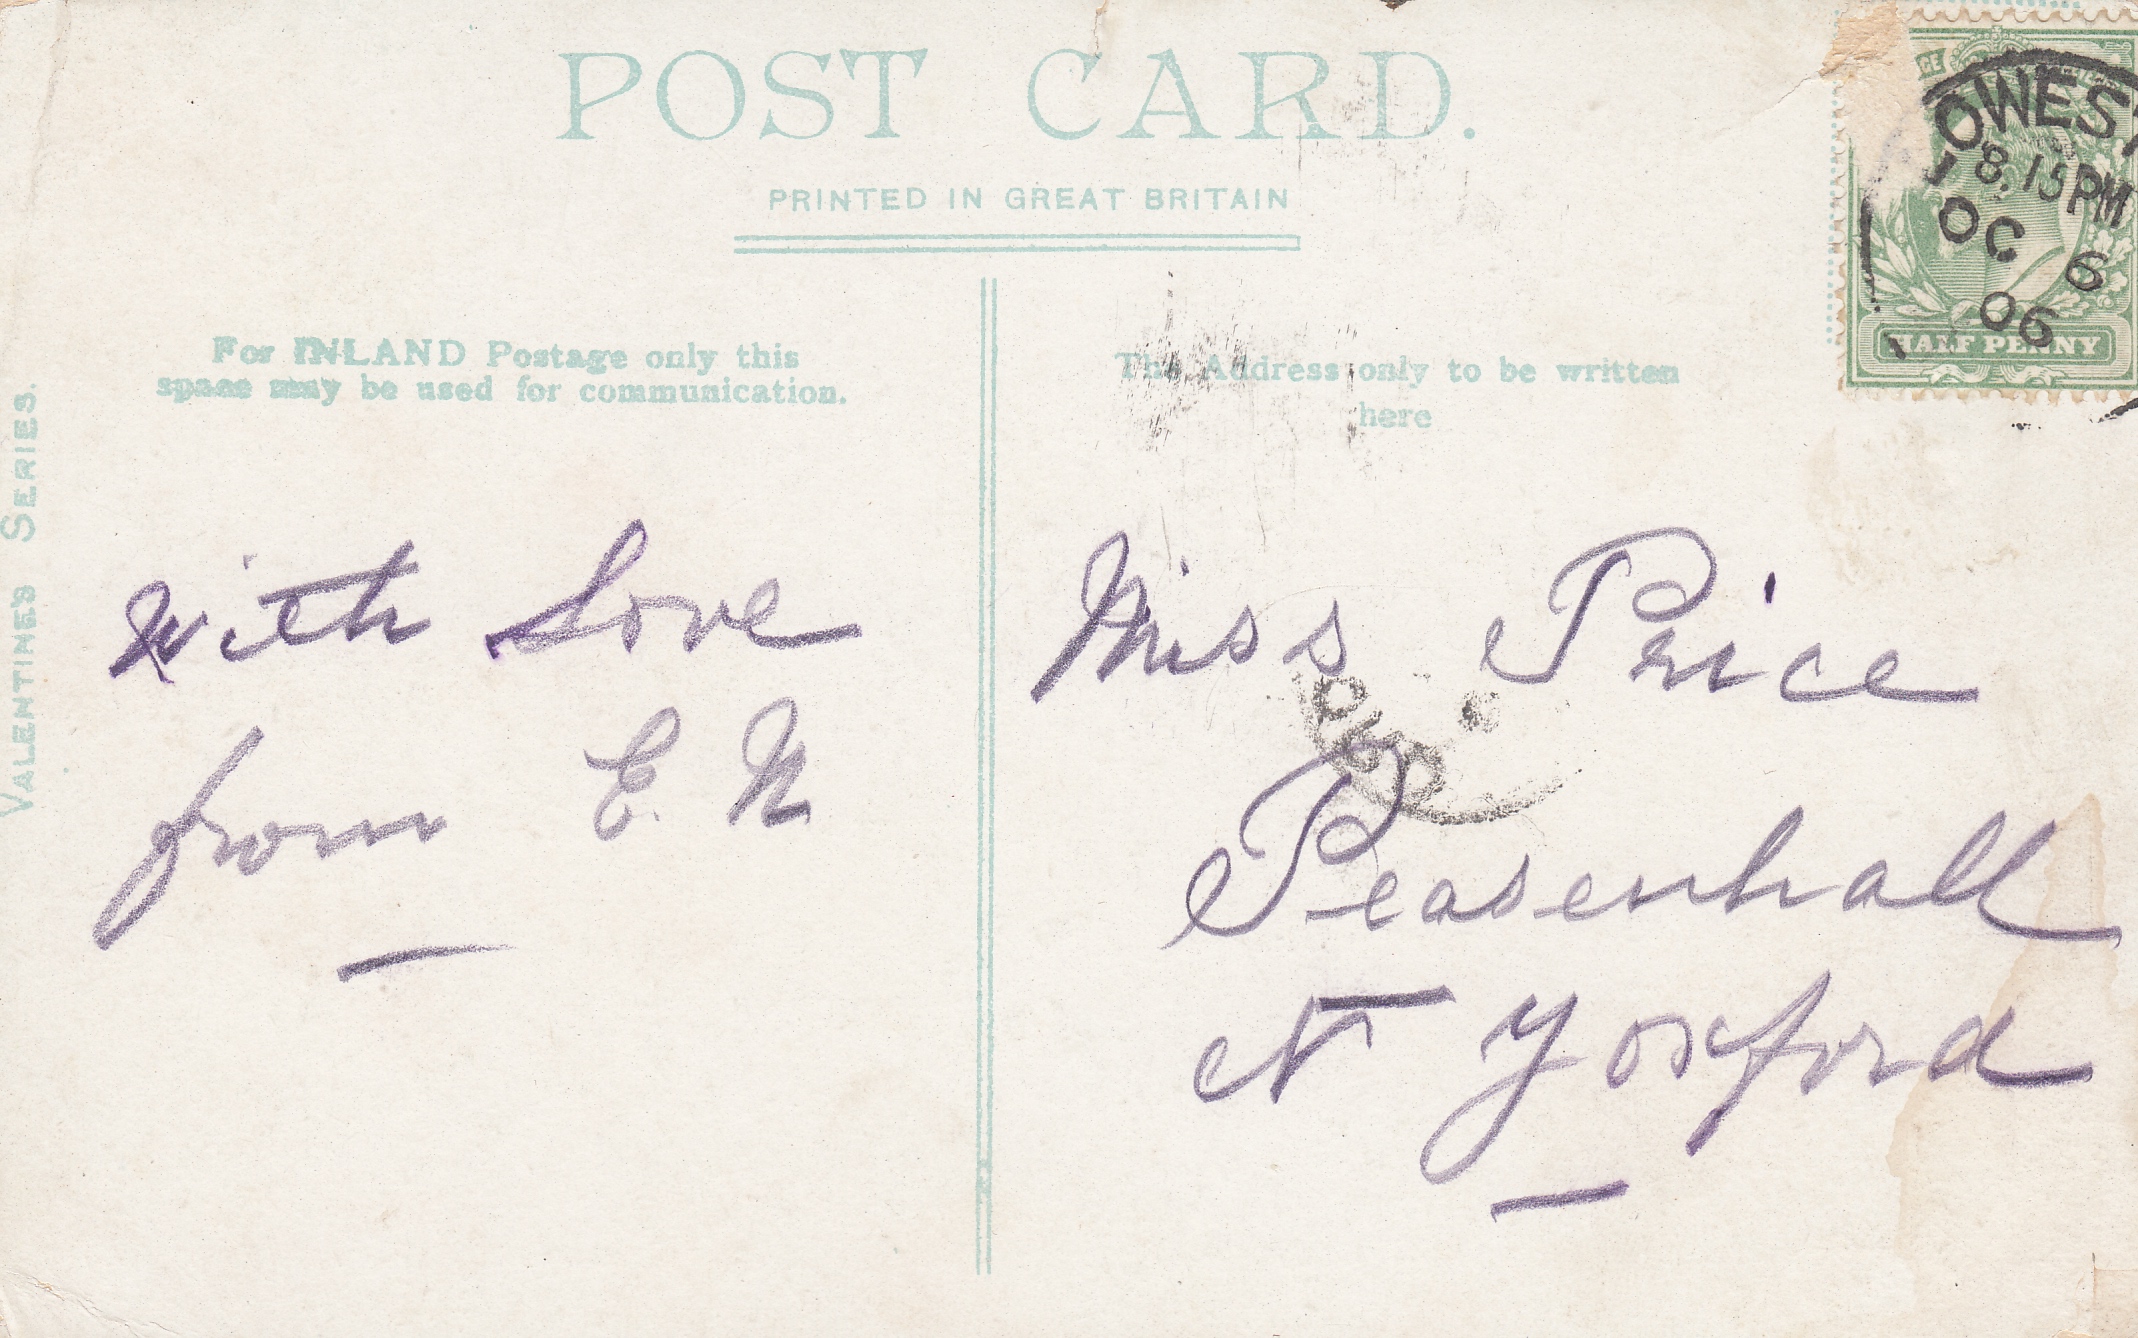 POST CARD.
PRINTED IN GREAT BRITAIN
For INLAND Postage only this
space may be used for communication.
The Address only to be written
here
VALENTINE'S SERIES.
OWEST
8.15PM
OC 6
06
HALF PENNY
With Love
from E. N
Miss Price
Peasenhall
N Yoxford